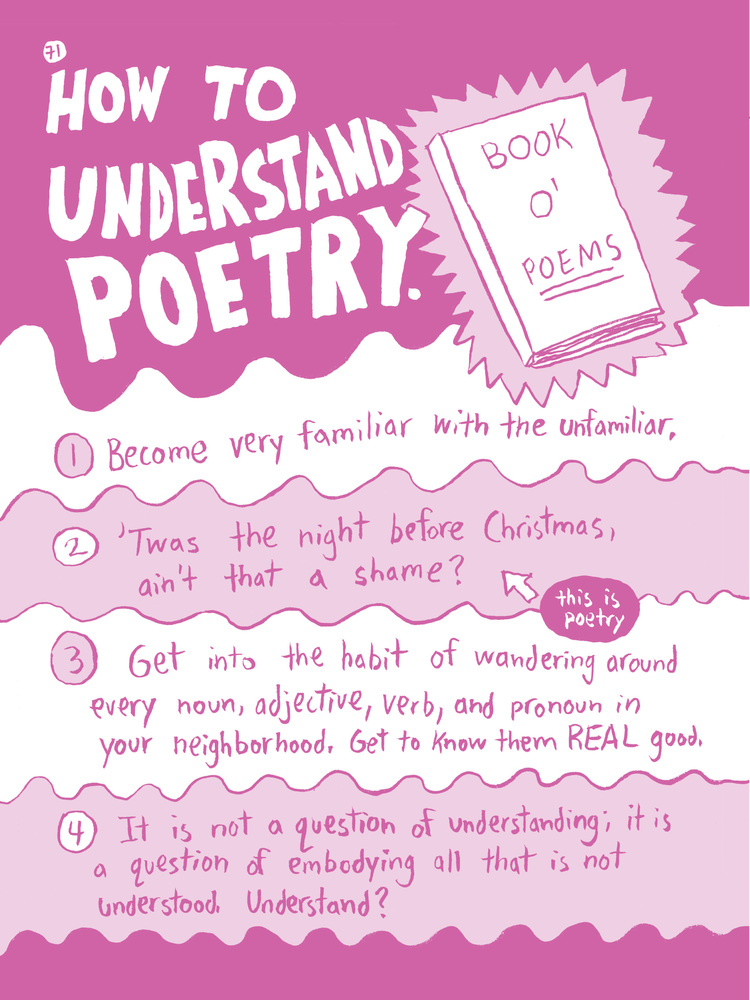 71
HOW TO
UNDERSTAND
POETRY.
BOOK
O'
POEMS
1 Become very familiar with the unfamiliar.
2 'Twas the night before Christmas,
ain't that a shame?
this is
poetry
3 Get into the habit of wandering around
every noun, adjective, verb, and pronoun in
your neighborhood. Get to know them REAL good.
4 It is not a question of understanding; it is
a question of embodying all that is not
understood. Understand?